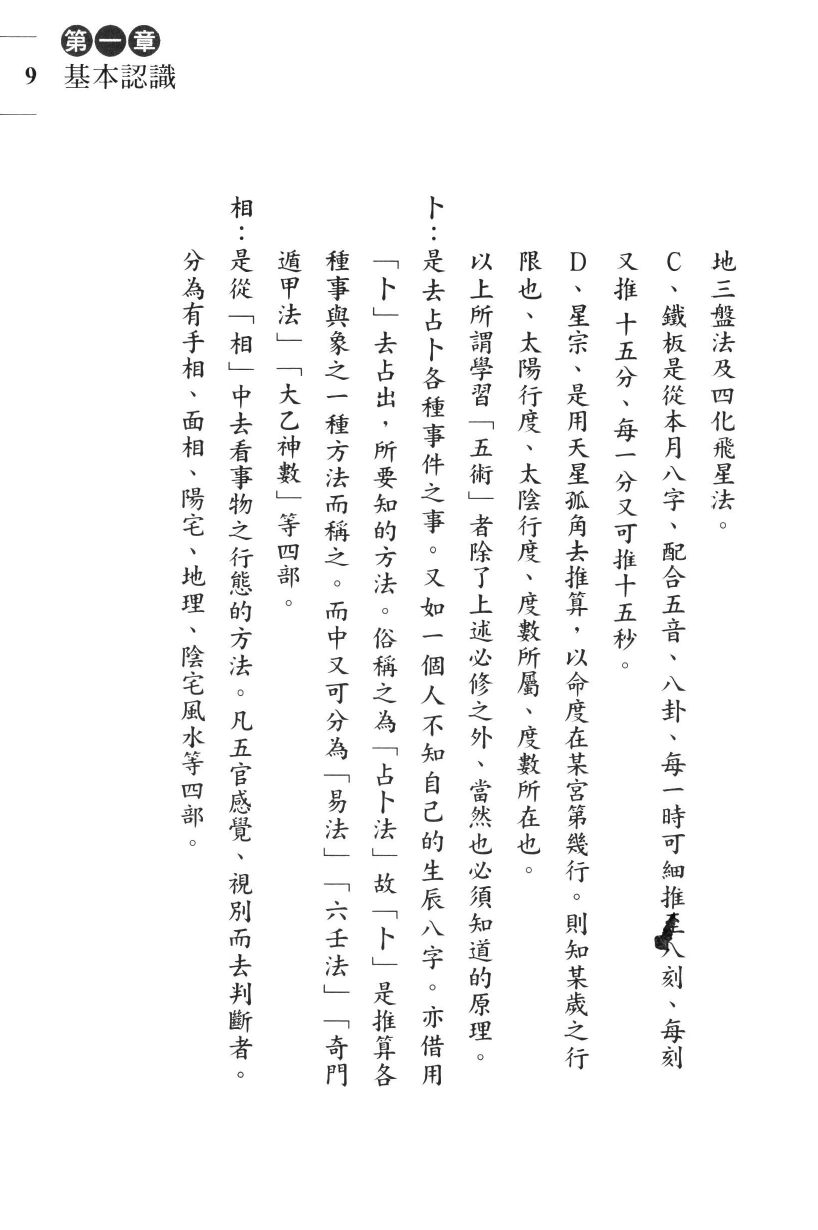 第一章
9
基本認識
地三盤法及四化飛星法。
C、鐵板是從本月八字、配合五音、八卦、每一時可細推 八刻、每刻
又推十五分、每一分又可推十五秒。
D、星宗、是用天星孤角去推算，以命度在某宮第幾行。則知某歲之行
限也、太陽行度、太陰行度、度數所屬、度數所在也。
以上所謂學習「五術」者除了上述必修之外、當然也必須知道的原理。
卜：是去占卜各種事件之事。又如一個人不知自己的生辰八字。亦借用
「卜」去占出，所要知的方法。俗稱之為「占卜法」故「卜」是推算各
種事與象之一種方法而稱之。而中又可分為「易法」「六壬法」「奇門
遁甲法」「大乙神數」等四部。
相：是從「相」中去看事物之行態的方法。凡五官感覺、視別而去判斷者。
分為有手相、面相、陽宅、地理、陰宅風水等四部。